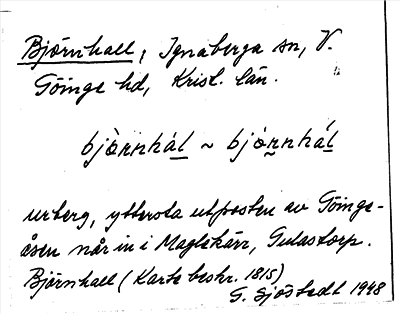 Björnhall, Ignaberga sn, V.
Göinge hd, Krist. län.
bjònnhál ~ bjònnhál
urberg, yttersta utposten av Göinge-
åsen når in i Maglekärr, Gulastorp.
Björnhall (Karta beskr. 1815)
G. Sjöstedt 1948